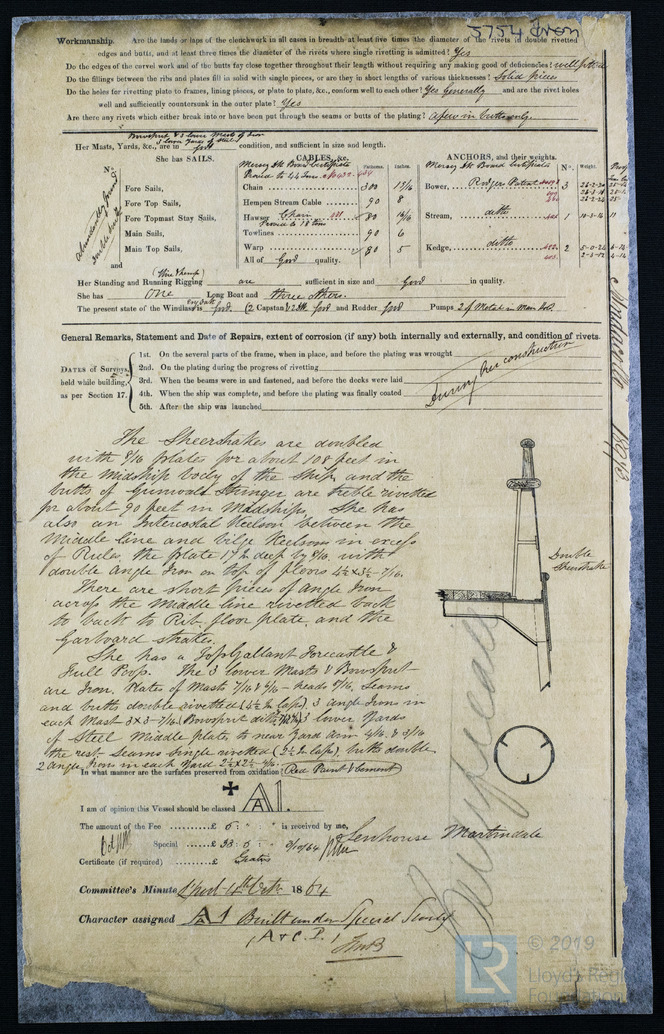 5754 Iron
Workmanship. Are the lands or laps of the clenchwork in all cases in breadth at least five times the diameter of the rivets in double rivetted
edges and butts, and at least three times the diameter of the rivets where single rivetting is admitted? Yes
Do the edges of the carvel work and of the butts fay close together throughout their length without requiring any making good of deficiencies? well fitted
Do the fillings between the ribs and plates fill in solid with single pieces, or are they in short lengths of various thicknesses? Solid pieces
Do the holes for rivetting plate to frames, lining pieces, or plate to plate, &c., conform well to each other? Yes Generally and are the rivet holes
well and sufficiently countersunk in the outer plate? Yes
Are there any rivets which either break into or have been put through the seams or butts of the plating? a few in butts only.
Bowsprit & 3 lower Masts of Iron
3 lower Yards of Steel
Her Masts, Yards, &c., are in good condition, and sufficient in size and length.
She has SAILS. CABLES, &c. Fathoms. Inches. ANCHORS, and their weights. Nº. Weight.
Nº.
Fore Sails,
Fore Top Sails,
Fore Topmast Stay Sails,
Main Sails,
Main Top Sails,
and
Chain 300
Hempen Stream Cable 90 8
Hawser Chain 80
Towlines 90 6
Warp 80 5
All of Good quality.
Bower, Rodgers Patent 3
Stream, ditto 1
Kedge, ditto 2
(Wire & hemp)
Her Standing and Running Rigging are sufficient in size and Good in quality.
She has One Long Boat and three others.
The present state of the Windlass is good. (2 Capstan good and Rudder good Pumps 2 of Metal in Main Hold.
General Remarks, Statement and Date of Repairs, extent of corrosion (if any) both internally and externally, and condition of rivets.
DATES of Surveys held while building, as per Section 17.
1st. On the several parts of the frame, when in place, and before the plating was wrought
2nd. On the plating during the progress of rivetting
3rd. When the beams were in and fastened, and before the decks were laid
4th. When the ship was complete, and before the plating was finally coated
5th. After the ship was launched
During her construction
The Sheerstrakes are doubled
with 9/16 plates for about 108 feet in
the midship body of the ship, and the
butts of Gunwale Stringer are treble rivetted
for about 90 feet in Midships, She has
also an Intercostal Keelson between the
Middle line and bilge Keelsons in excess
of Rules, the plate 17 in deep by 8/16, with
double angle Iron on top of floors 4½ x 3½ - 7/16.
There are short pieces of angle Iron
across the Middle line rivetted back
to back to Rib. floor plate and the
Garboard strakes.
She has a TopGallant Forecastle &
Full Poop. The 3 lower Masts & Bowsprit
are Iron. Plates of Masts 7/16 & 6/16 - heads 5/16, Seams
and butts double rivetted (4½ in laps), 3 angle Irons in
each Mast 3 x 3 - 7/16 (Bowsprit ditto) 3 lower Yards
of Steel Middle plates to near Yard arm 4/16 & 3/16
the rest - Seams single rivetted (2½ in laps), butts double
2 angle Irons in each Yard 2½ x 2½ 4/16.
Double
Sheerstrake
In what manner are the surfaces preserved from oxidation? Red Paint & Cement
I am of opinion this Vessel should be classed ✠ A1.
The amount of the Fee .......... £ 5 : " : " is received by me,
Special ...... £
Certificate (if required) ....... £ Gratis
Senhouse Martindale
Committee's Minute 4th Octr 1864
Character assigned A1 Built under Special Survey
(A & C.P.)
LR
© 2019
Lloyd's Register
Foundation